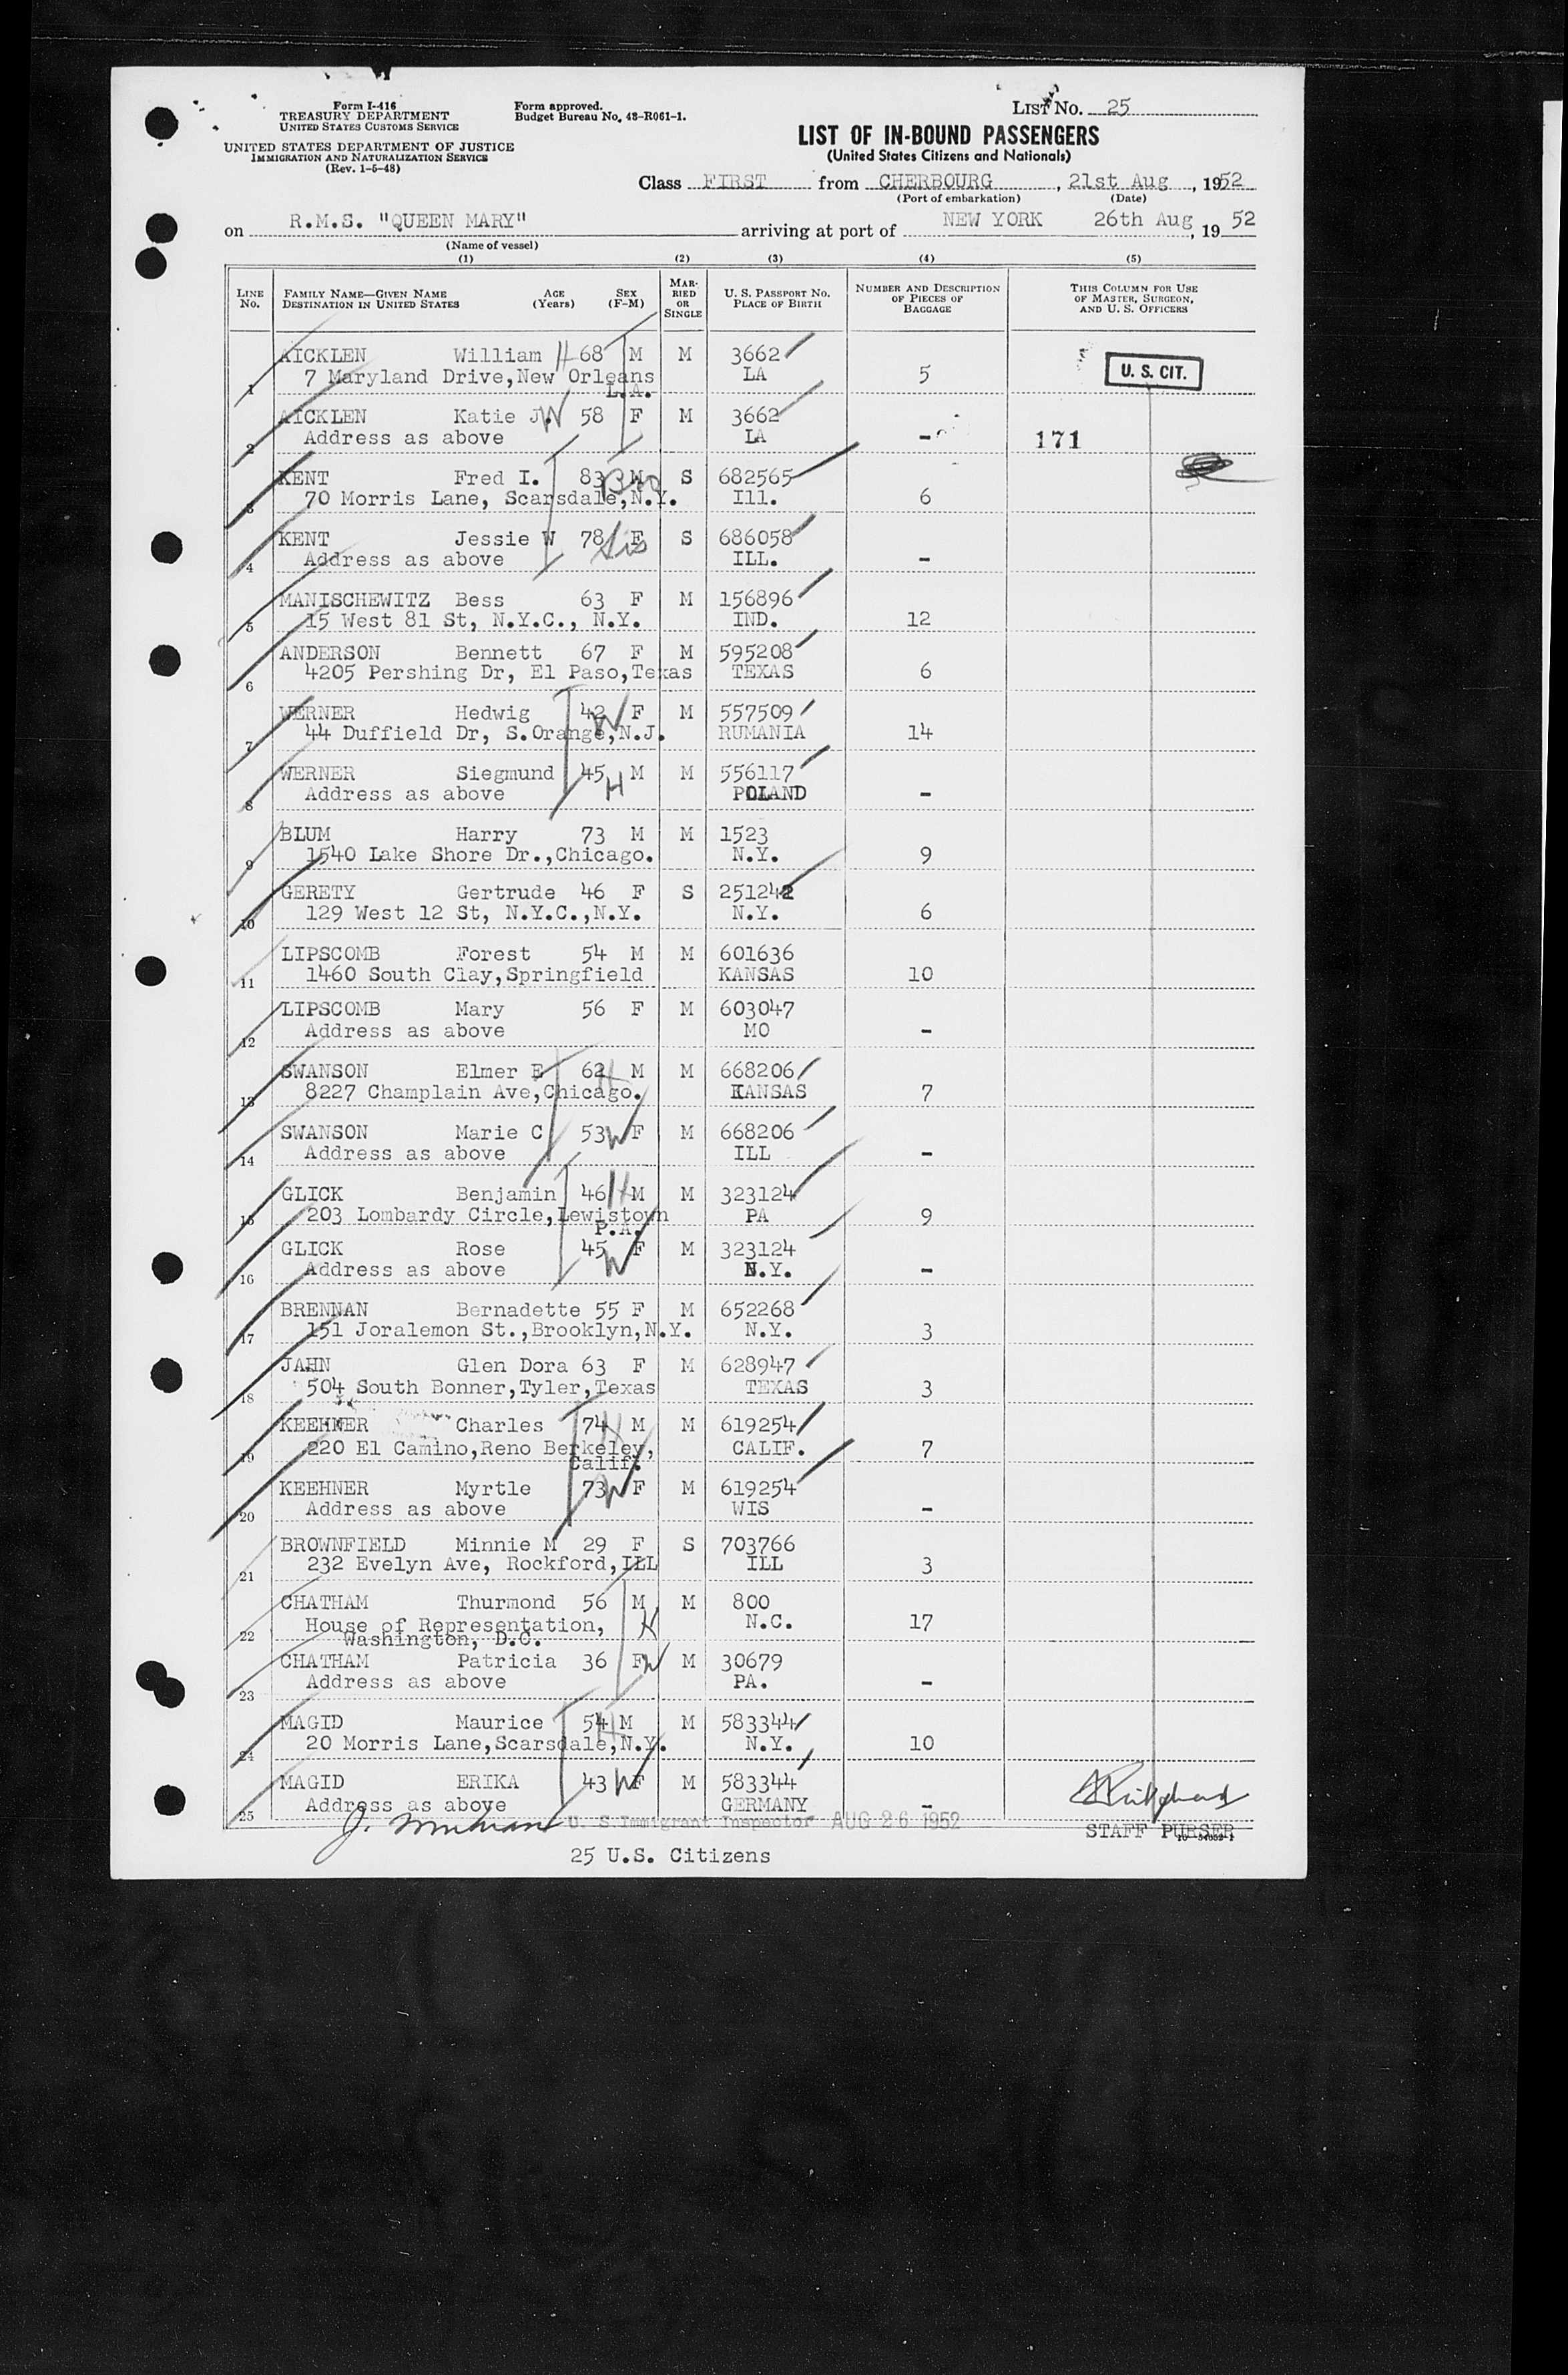 Form I-416
TREASURY DEPARTMENT
UNITED STATES CUSTOMS SERVICE
UNITED STATES DEPARTMENT OF JUSTICE
IMMIGRATION AND NATURALIZATION SERVICE
(Rev. 1-5-48)
Form approved.
Budget Bureau No. 43-R061-1.
LIST No. 25
LIST OF IN-BOUND PASSENGERS
(United States Citizens and Nationals)
Class FIRST from CHERBOURG, 21st Aug, 1952
(Port of embarkation) (Date)
on R.M.S. "QUEEN MARY" arriving at port of NEW YORK 26th Aug, 1952
(Name of vessel)
(1) (2) (3) (4) (5)
LINE No. FAMILY NAME—GIVEN NAME DESTINATION IN UNITED STATES AGE (Years) SEX (F-M) MARRIED OR SINGLE U. S. PASSPORT NO. PLACE OF BIRTH NUMBER AND DESCRIPTION OF PIECES OF BAGGAGE THIS COLUMN FOR USE OF MASTER, SURGEON, AND U. S. OFFICERS
AICKLEN William H 68 M M 3662
1 7 Maryland Drive,New Orleans L.A. LA 5 U. S. CIT.
AICKLEN Katie J. W 58 F M 3662
2 Address as above LA - 171
KENT Fred I. 83 M Bro S 682565
3 70 Morris Lane, Scarsdale,N.Y. Ill. 6
KENT Jessie W 78 F Sis S 686058
4 Address as above ILL. -
MANISCHEWITZ Bess 63 F M 156896
5 15 West 81 St, N.Y.C., N.Y. IND. 12
ANDERSON Bennett 67 F M 595208
6 4205 Pershing Dr, El Paso,Texas TEXAS 6
WERNER Hedwig 42 W F M 557509
7 44 Duffield Dr, S.Orange,N.J. RUMANIA 14
WERNER Siegmund 45 H M M 556117
8 Address as above POLAND -
BLUM Harry 73 M M 1523
9 1540 Lake Shore Dr.,Chicago. N.Y. 9
GERETY Gertrude 46 F S 251242
10 129 West 12 St, N.Y.C.,N.Y. N.Y. 6
LIPSCOMB Forest 54 M M 601636
11 1460 South Clay,Springfield KANSAS 10
LIPSCOMB Mary 56 F M 603047
12 Address as above MO -
SWANSON Elmer E 62 H M M 668206
13 8227 Champlain Ave,Chicago. KANSAS 7
SWANSON Marie C 53 W F M 668206
14 Address as above ILL -
GLICK Benjamin 46 H M M 323124
15 203 Lombardy Circle,Lewistown P.A. PA 9
GLICK Rose 45 W F M 323124
16 Address as above N.Y. -
BRENNAN Bernadette 55 F M 652268
17 151 Joralemon St.,Brooklyn,N.Y. N.Y. 3
JAHN Glen Dora 63 F M 628947
18 504 South Bonner,Tyler,Texas TEXAS 3
KEEHNER Charles 74 H M M 619254
19 220 El Camino,Reno Berkeley, Calif. CALIF. 7
KEEHNER Myrtle 73 W F M 619254
20 Address as above WIS -
BROWNFIELD Minnie M 29 F S 703766
21 232 Evelyn Ave, Rockford,ILL ILL 3
CHATHAM Thurmond 56 M H M 800
22 House of Representation, Washington, D.C. N.C. 17
CHATHAM Patricia 36 F W M 30679
23 Address as above PA. -
MAGID Maurice 54 H M M 583344
24 20 Morris Lane,Scarsdale,N.Y. N.Y. 10
MAGID ERIKA 43 W F M 583344
25 Address as above GERMANY -
J. U. S Immigrant Inspector AUG 26 1952 STAFF PURSER
25 U.S. Citizens